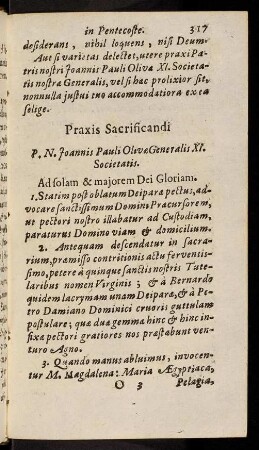 in Pentecoste. 317
desiderans, nihil loquens, nisi Deum.
Aut si varietas delectet, utere praxi Pa-
tris nostri Joannis Pauli Oliva XI. Socie-
tatis nostræ Generalis, vel si hac prolixior sit,
nonnulla justui tuo accommodatiora ex ea
selige.
Praxis Sacrificandi
P. N. Joannis Pauli Olivæ Generalis XI.
Societatis.
Ad solam & majorem Dei Gloriam.
1. Statim post oblatum Deiparæ pectus, ad-
vocare sanctissimum Domini Præcursorem,
ut pectori nostro illabatur ad Custodiam,
paraturus Domino viam & domicilium.
2. Antequam descendatur in sacra-
rium, præmisso contritionis actu ferventis-
simo, petere à quinque sanctis nostris Tute-
laribus nomen Virginis; & à Bernardo
quidem lacrymam unam Deiparæ, & à Pe-
tro Damiano Dominici cruoris guttulam
postulare; quæ dua gemma hinc & hinc in-
fixæ pectori gratiores nos præstabunt ven-
turo Agno.
3. Quando manus abluimus, invocen-
tur M. Magdalena: Maria Ægyptiaca,
O 3 Pelagia,